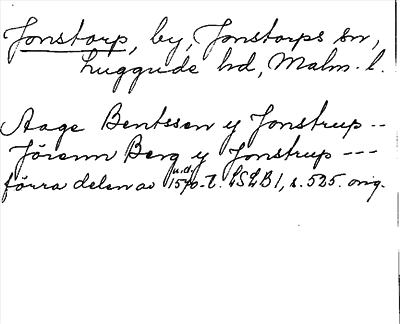 Jonstorp, by, Jonstorps sn,
Luggude hd, Malm. l.
Aage Bentssen y Jonstrup --
Jörenn Berg y Jonstrup ---
förra delen av u.å. 1570-t. LSLB 1, s. 525. orig.